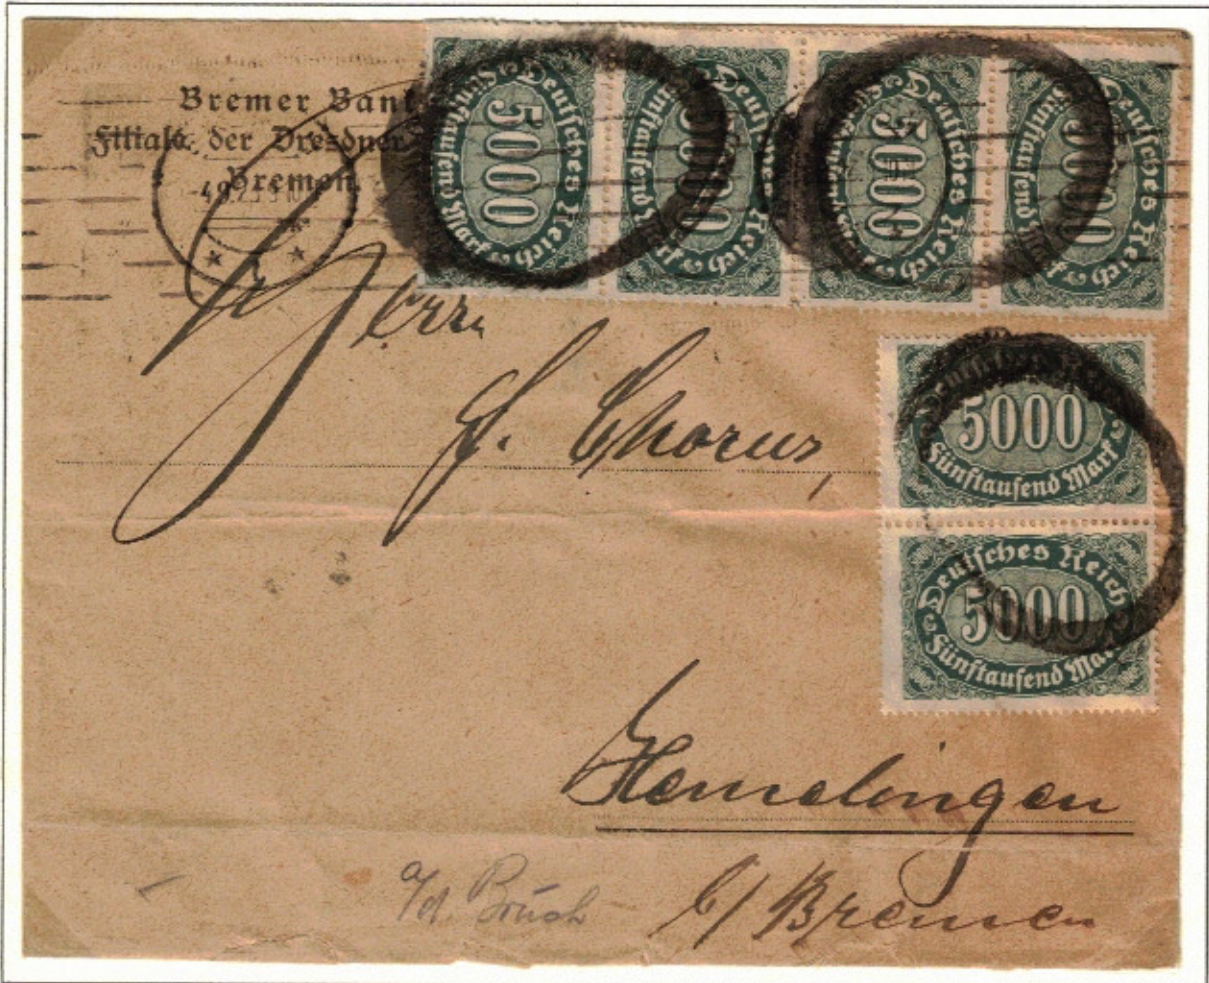 Bremer Bank
Filiale der Dresdner
Bremen.
Deutsches Reich
5000
Fünftausend Mark
Deutsches Reich
5000
Fünftausend Mark
Deutsches Reich
5000
Fünftausend Mark
Deutsches Reich
5000
Fünftausend Mark
Herrn
Chorus,
Deutsches Reich
5000
Fünftausend Mark
Deutsches Reich
5000
Fünftausend Mark
Hemelingen
b/ Bremen
a/d Brüch